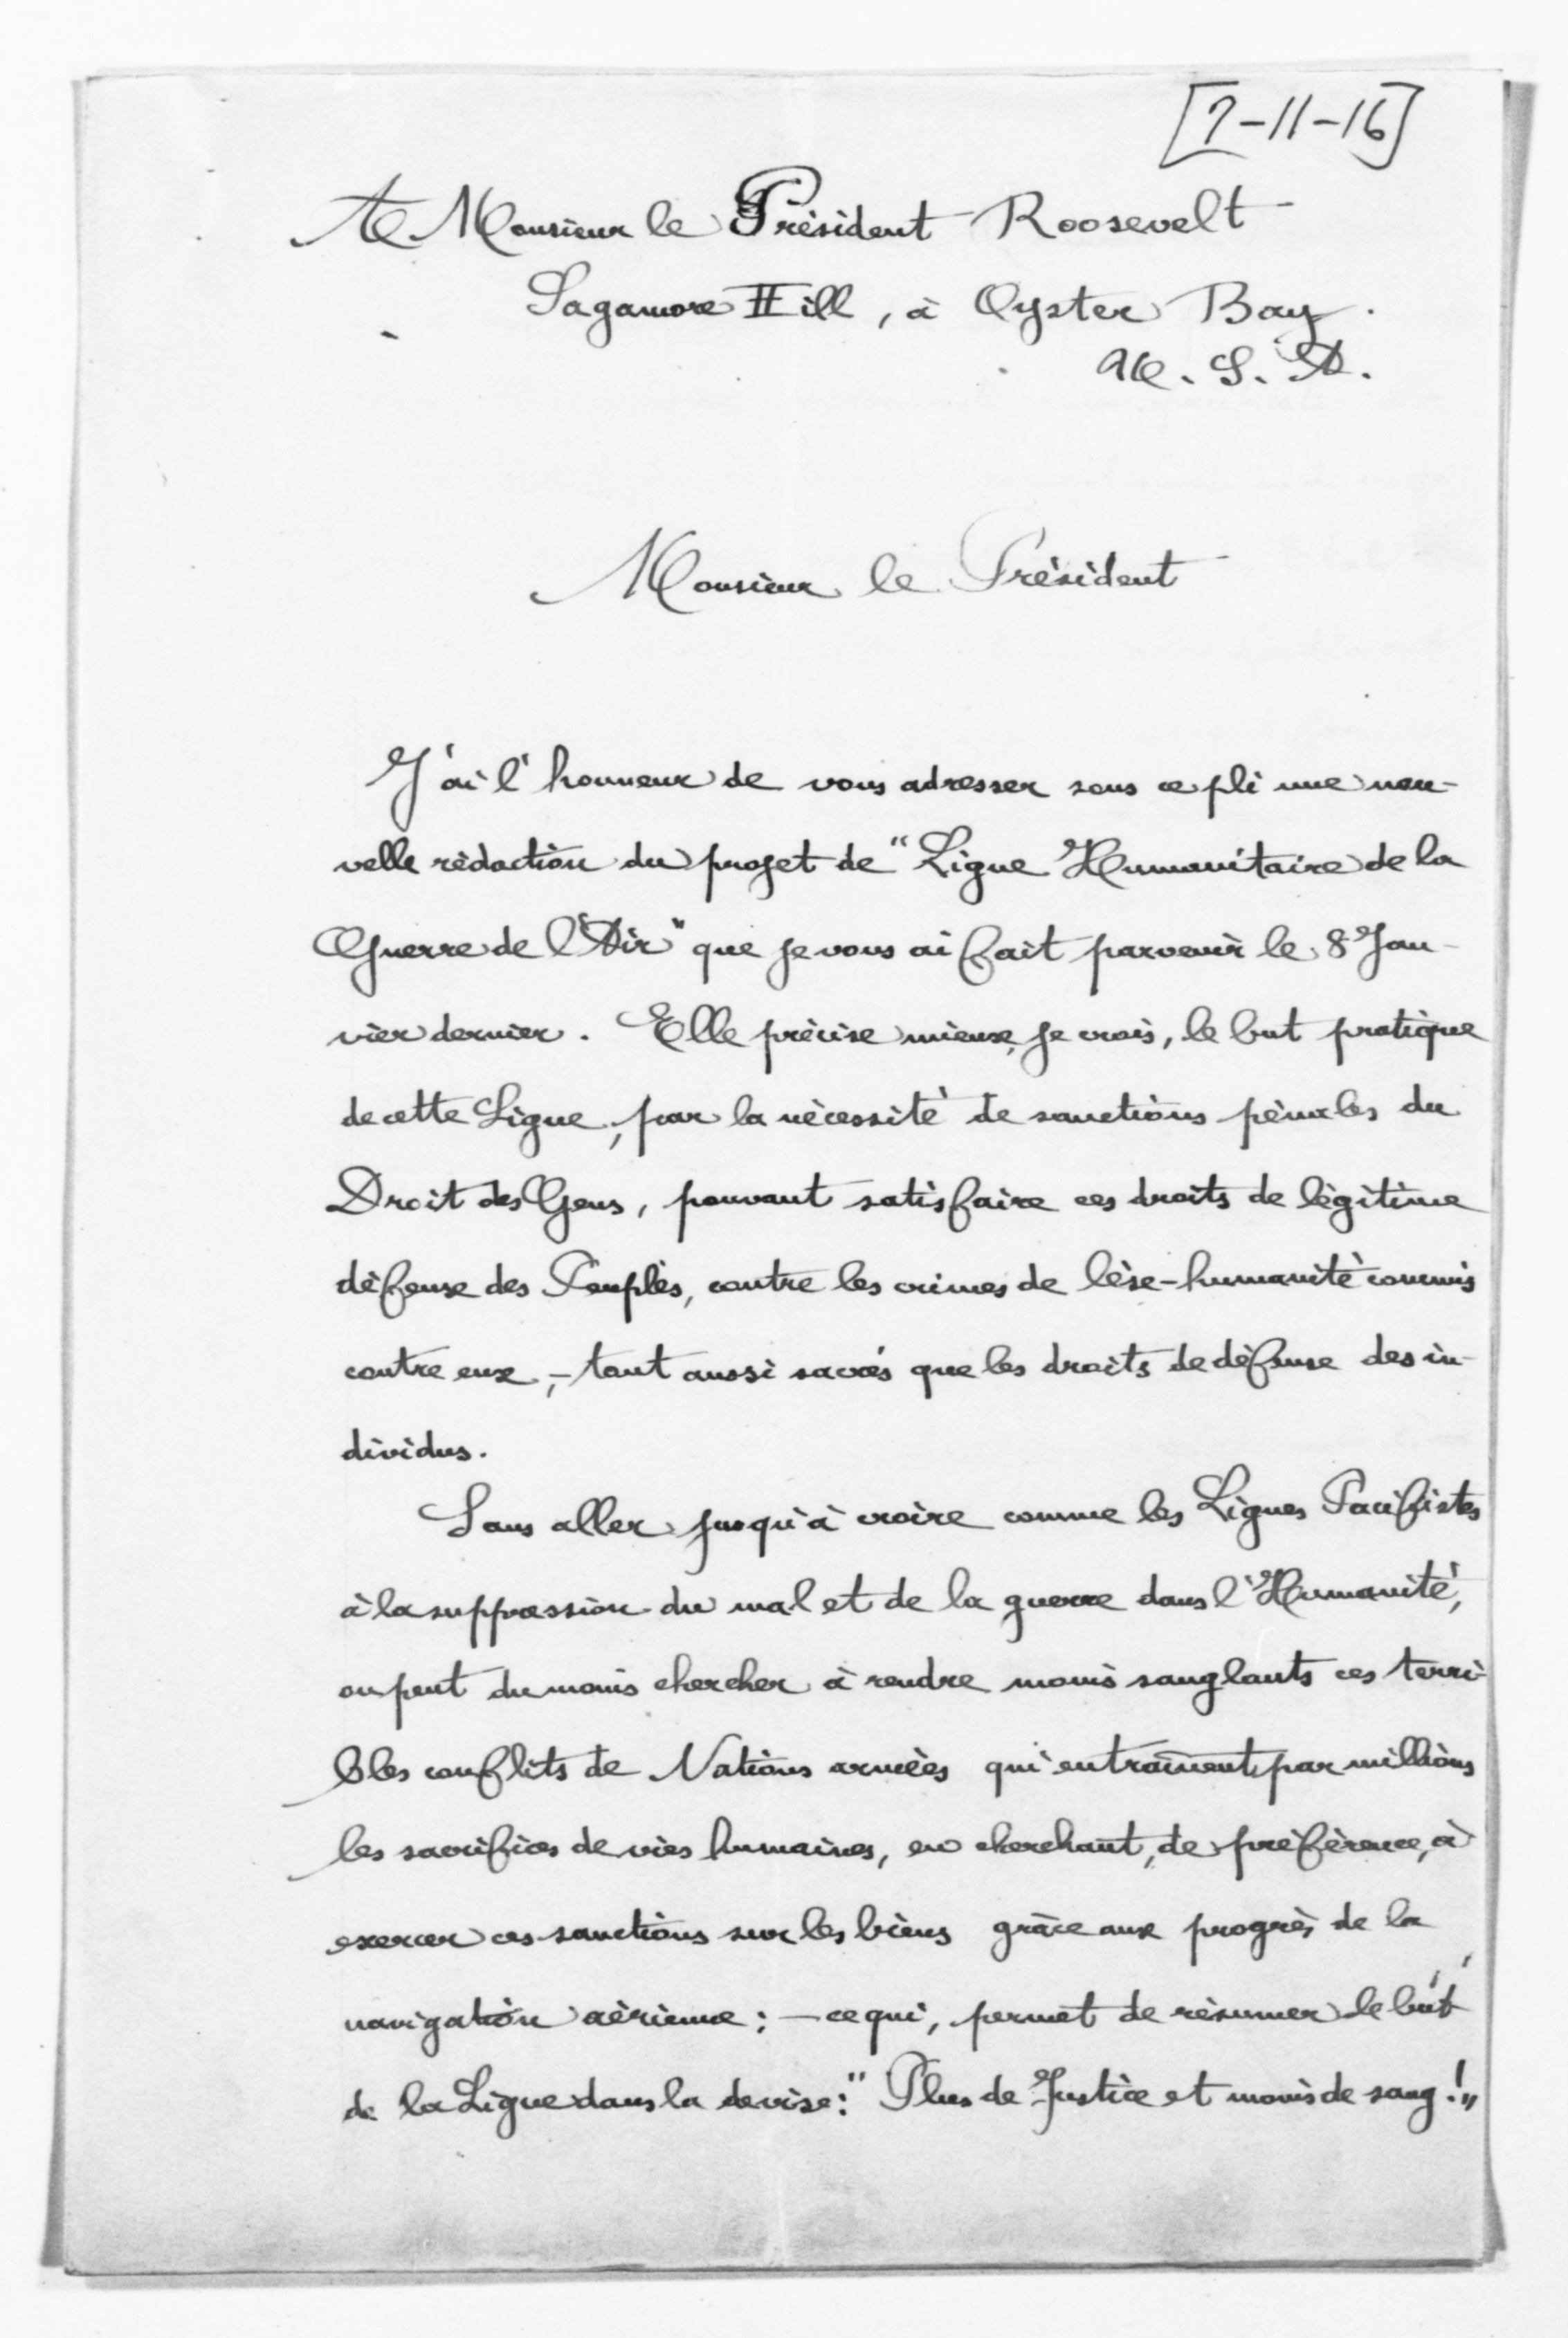 [7-11-16]
A Monsieur le Président Roosevelt
Sagamore Hill, à Oyster Bay.
U. S. A.
Monsieur le Président
J'ai l'honneur de vous adresser sous ce pli une nou-
velle rédaction du projet de "Ligue Humanitaire de la
Guerre de l'Air" que je vous ai fait parvenir le 8 Jan-
vier dernier. Elle précise mieux, je crois, le but pratique
de cette Ligue, par la nécessité de sanctions pénales du
Droit des Gens, pouvant satisfaire ces droits de légitime
défense des Peuples, contre les crimes de lèse-humanité commis
contre eux,- tout aussi sacrés que les droits de défense des in-
dividus.
Sans aller jusqu'à croire comme les Ligues Pacifistes
à la suppression du mal et de la guerre dans l'Humanité,
on peut du moins chercher à rendre moins sanglants ces terri-
bles conflits de Nations armées qui entraînent, par millions
les sacrifices de vies humaines, en cherchant, de préférence, à
exercer ces sanctions sur les biens grâce aux progrès de la
navigation aérienne; - ce qui, permet de résumer le but
de la Ligue dans la devise: "Plus de Justice et moins de sang!"